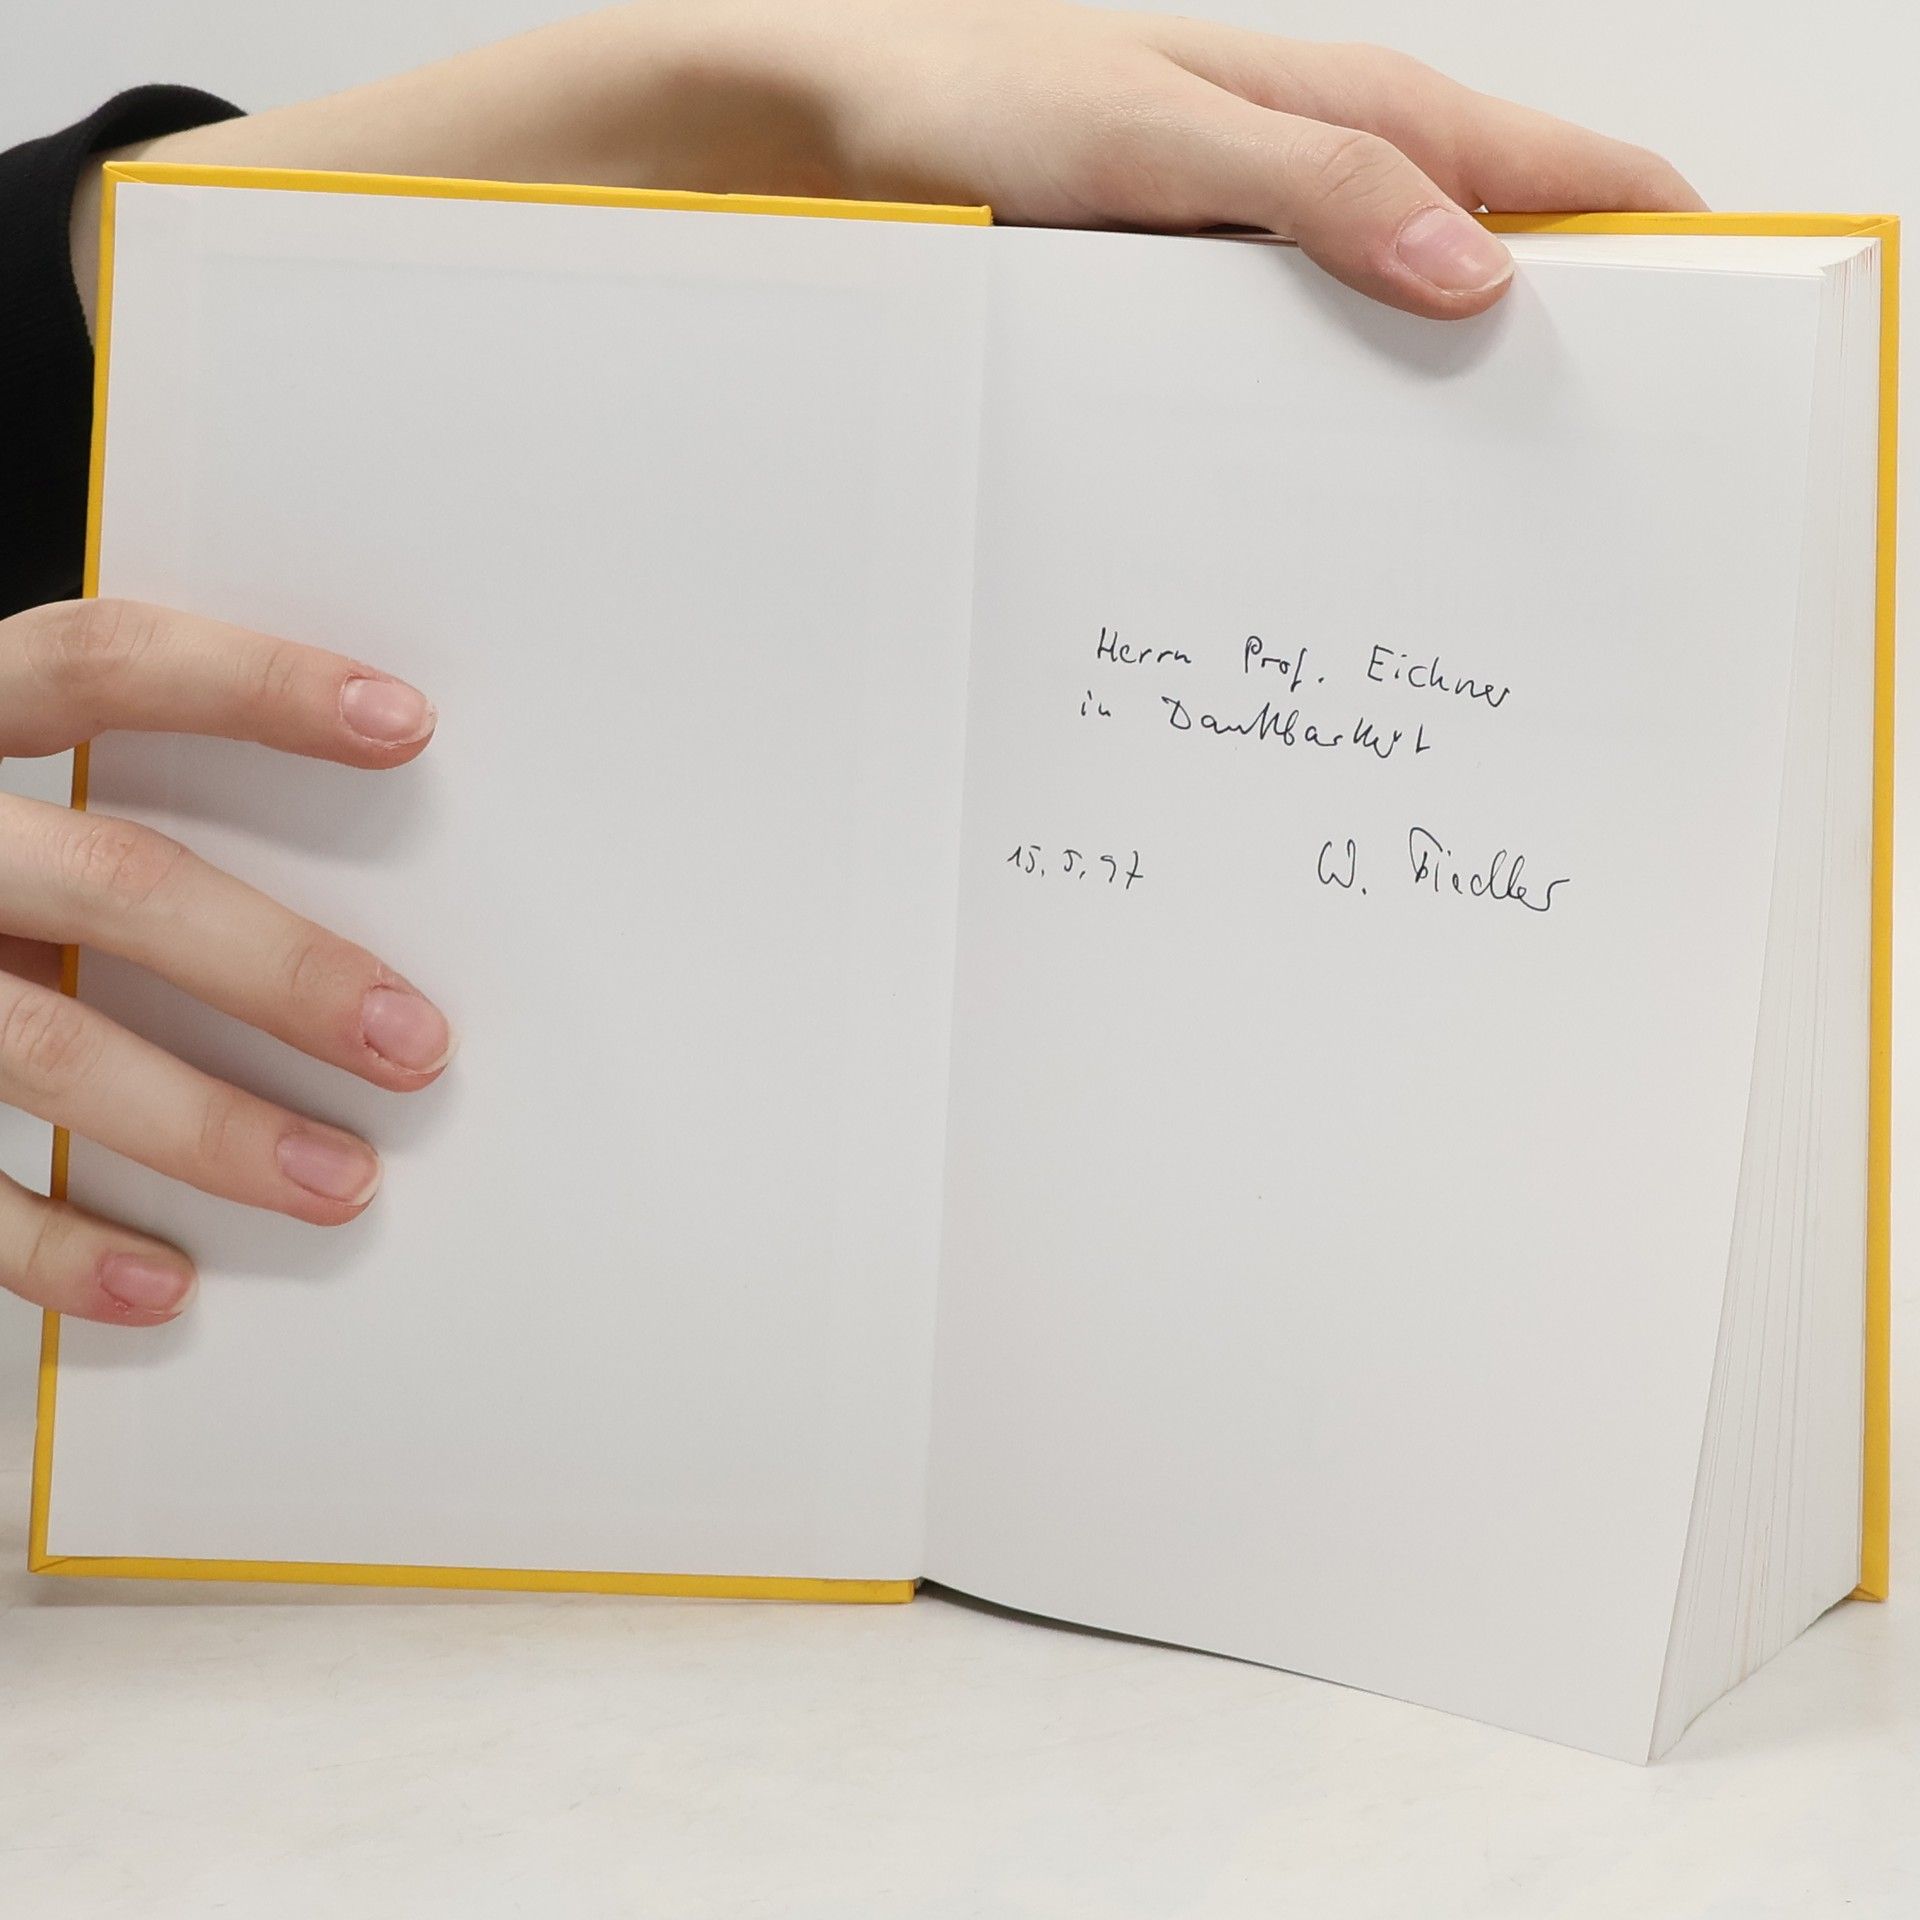 Herrn Prof. Eichner
in Dankbarkeit
15.5.97 W. Fiedler